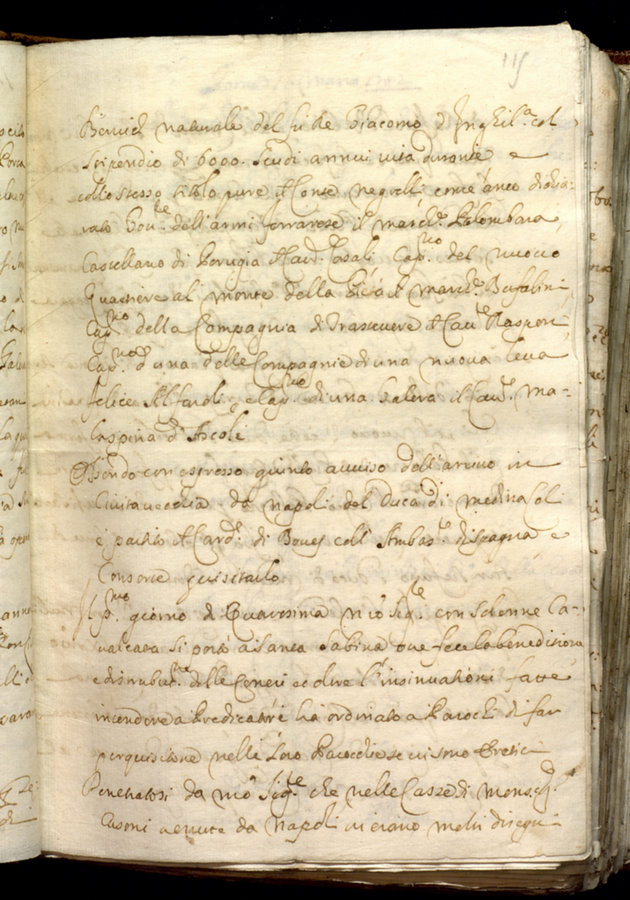 115
Bervich naturale del fu Re Giacomo d'Inghil.ª col
stipendio di 6000. scudi annui vita durante e
collo stesso titolo pure il Conte negrelli, come anco dichia-
rato Gov.re dell'armi ferrarese il march.e Palombara,
Castellano di Perugia il Cav.r Casali, Cap.no del nuovo
Quartiere al monte della Pietà il march.e Bufalini,
Cap.no della Compagnia di Trastevere il Cav.e Rasponi,
Cap.no d'una delle Compagnie di una nuova leva
felice e Cap.no di una Galera il Cav.e Ma-
laspina d'Ascoli
Essendo con espresso giunto avviso dell'arrivo in
Civitavecchia da napoli del Duca di medina Celi
è partito il Card.e di coll'Ambas.re di Spagna e
Consorte à visitarlo
Il p.mo giorno di Quaresima n'ro Sig.re con solenne Ca-
valcata si portò à Santa Sabina ove fece la benedizione
e distribut.ne delle Ceneri et oltre l'insinuationi fatte
intendere a Predicatori ha ordinato a Paroch.i di far
perquisitione nelle loro Parocchie se vi sono Eretici
Penetratosi da n'ro Sig.re che nelle Casse di Monsig.r
Casoni venute da Napoli vi erano molti disegni